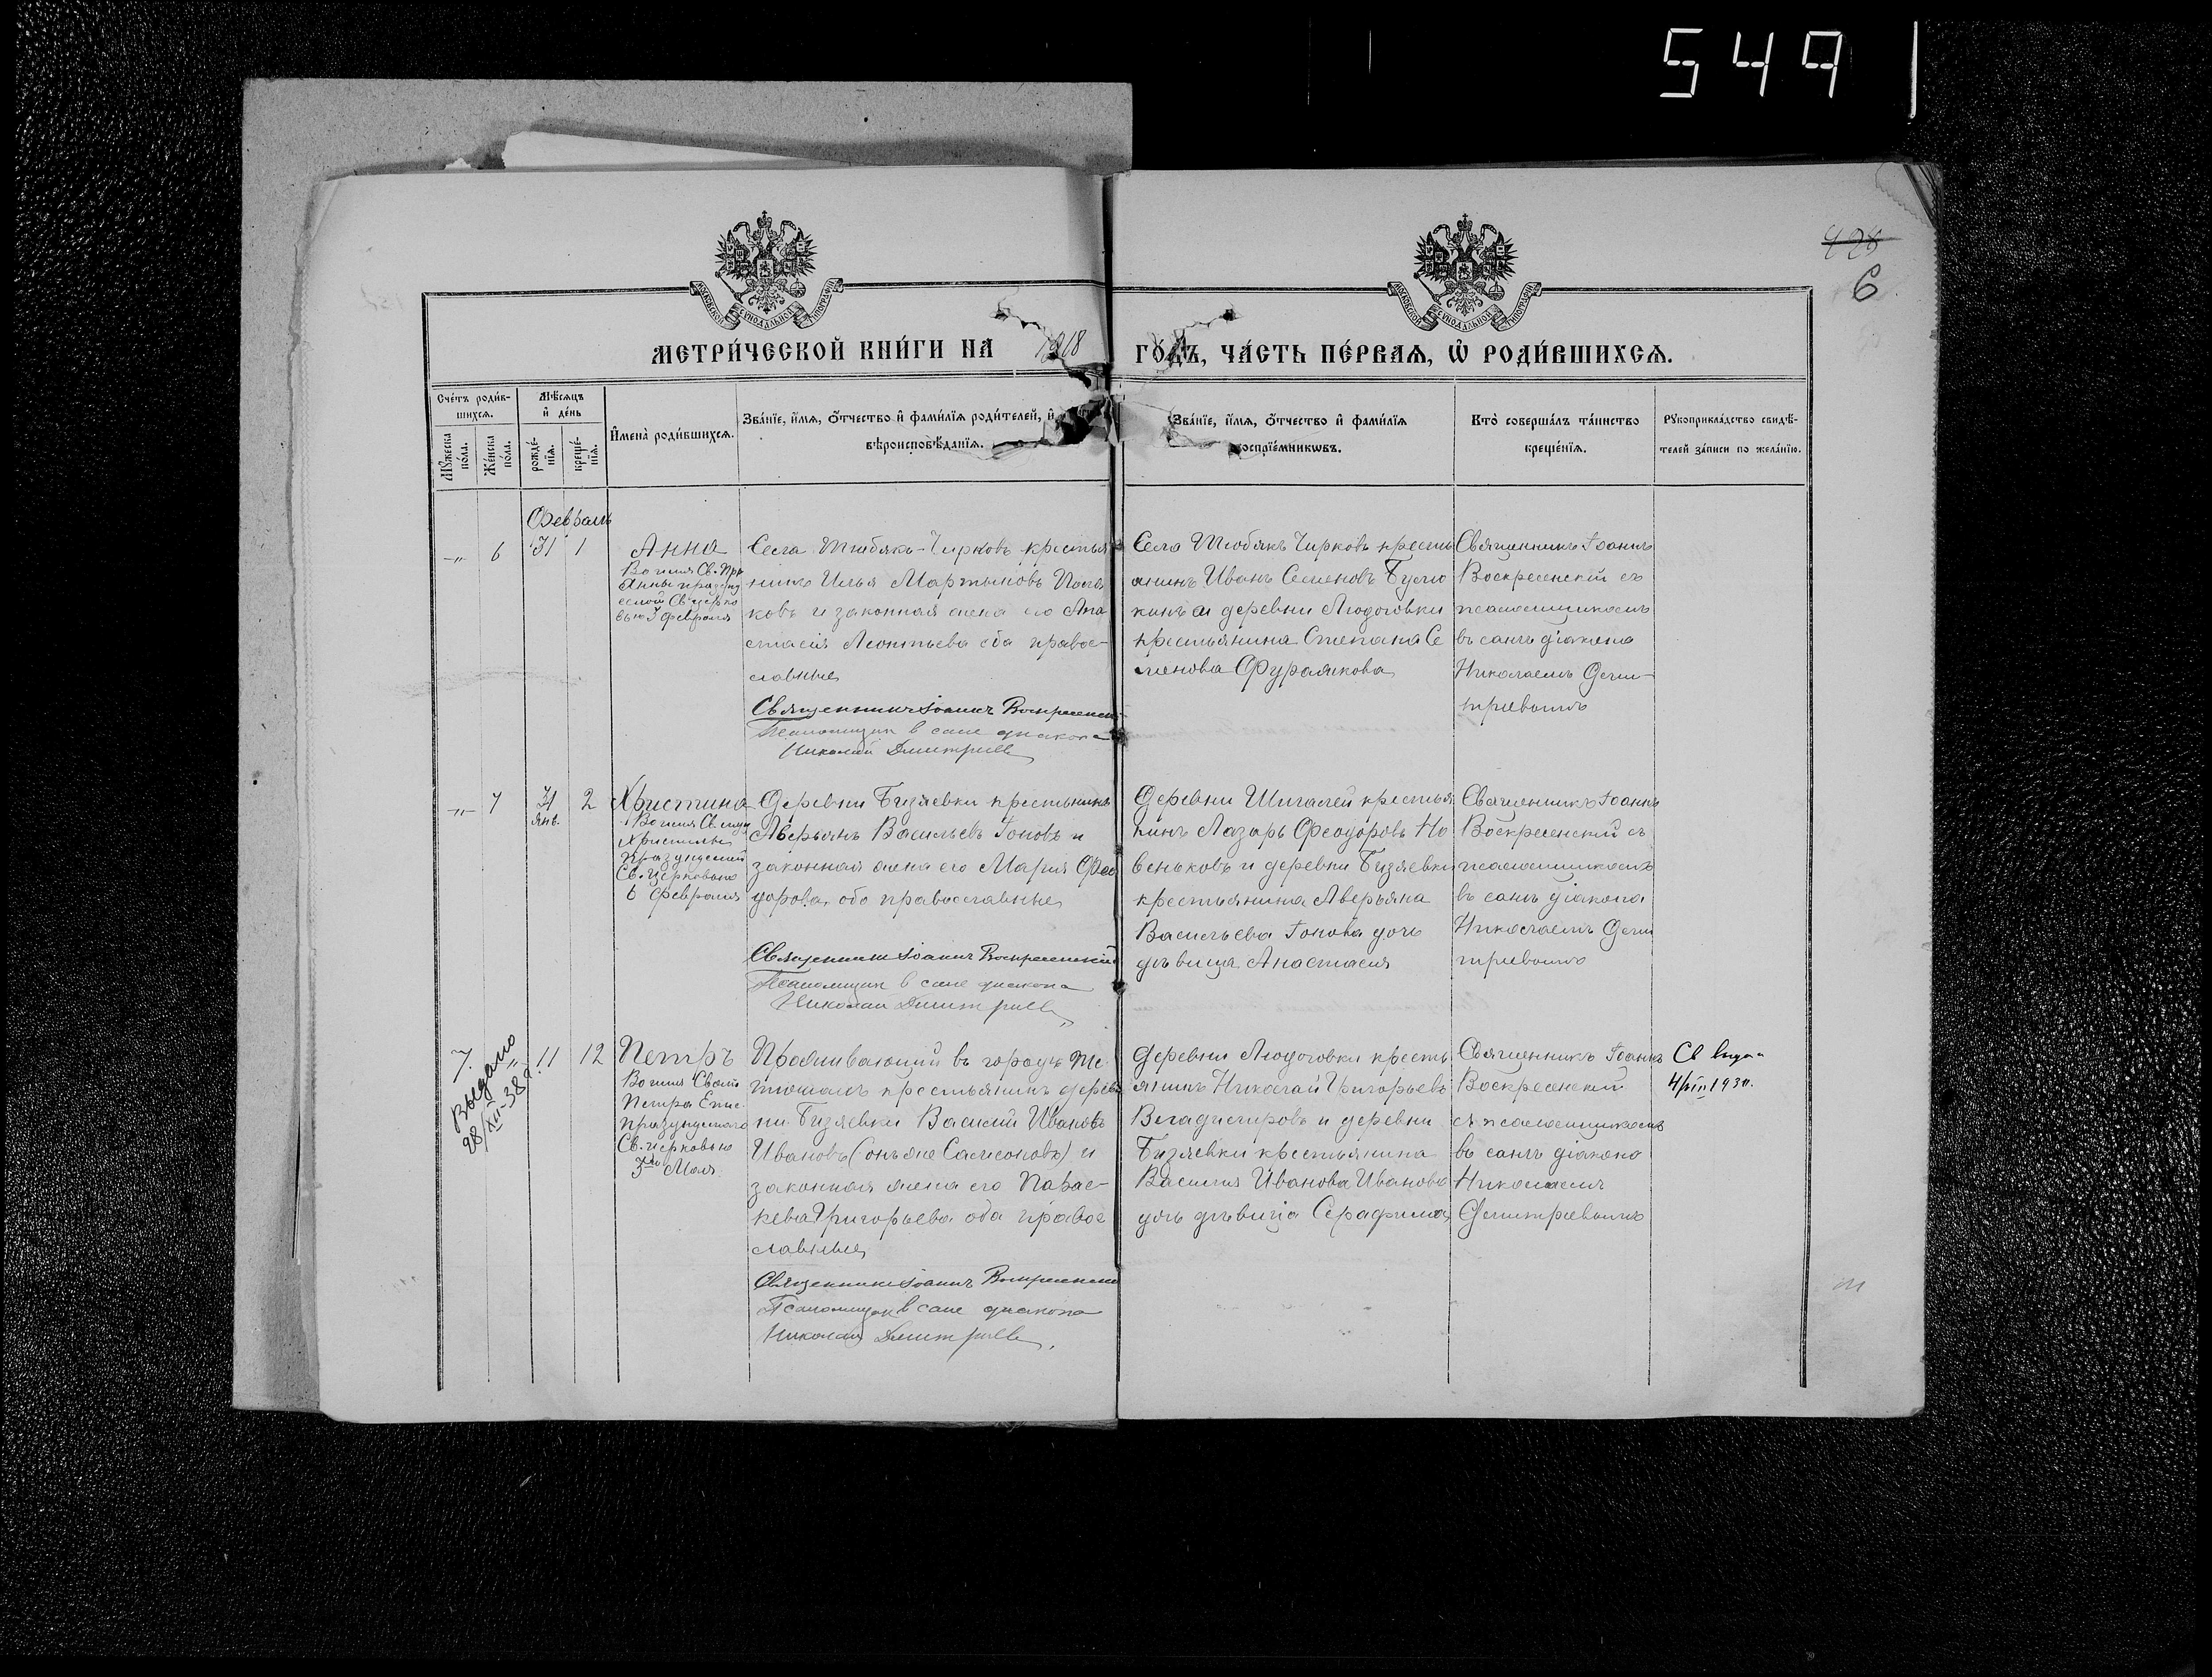 549
428
6
МОСКОВСКОЙ СѴНОДАЛЬНОЙ ТИПОГРАФІИ
МОСКОВСКОЙ СѴНОДАЛЬНОЙ ТИПОГРАФІИ
МЕТРИ́ЧЕСКОЙ КНИ́ГИ НА 1918 ГОДЪ, ЧА́СТЬ ПЕ́РВАѦ, Ѡ҆ РОДИ́ВШИХСѦ.
Сче́тъ роди́в-
шихсѧ.
Мꙋ́жеска
по́ла.
Же́нска
по́ла.
Мѣ́сѧцъ
и҆ де́нь
рожде́-
нїѧ.
креще́-
нїѧ.
И҆мена̀ роди́вшихсѧ.
Зва́нїе, и҆́мѧ, ѻ҆́тчество и҆ фами́лїѧ роди́телей, и҆
вѣроисповѣ́данїѧ.
Зва́нїе, и҆́мѧ, ѻ҆́тчество и҆ фами́лїѧ
воспрїе́мникѡвъ.
Кто̀ соверша́лъ та́инство
креще́нїѧ.
Рꙋкоприкла́дство свидѣ́-
телей за́писи по жела́нїю.
Февраль
-„- 6 31 1
Анна
Во имя Св. Пр
Анны празд
Св. церко
вью 3 февраля
Села Тюбякъ-Чирковъ крестья
нинъ Илья Мартыновъ
ковъ и законная жена его Ана
стасія Леонтьева оба право-
славные
Священникъ Іоаннъ Воскресенскій
Псаломщик в сане диакона
Николай Дмитриев
Село Тюбякъ Чирковъ кресть
янинъ Иванъ Семеновъ
кинъ и деревни Людоговки
крестьянина Степана Се
менова Фуражкова
Священникъ Іоаннъ
Воскресенскій съ
псаломщикомъ
въ санѣ діакона
Николаемъ Дми-
тріевымъ
-„- 7 31 янв. 2
Христина
Во имя Св. муч
Христины
празднуемой
Св. церковью
6 февраля
Деревни Бизяевки крестьянинъ
Аверьянъ Васильевъ Іоновъ и
законная жена его Марія Фео
дорова, оба православные
Священникъ Іоаннъ Воскресенский
Псаломщик в сане диакона
Николай Дмитриев
Деревни Шигалей крестья
нинъ Лазарь Феодоровъ Но
веньковъ и деревни Бизяевки
крестьянина Аверьяна
Васильева Іонова дочь
дѣвица Анастасія
Священникъ Іоаннъ
Воскресенскій съ
псаломщикомъ
въ санѣ діакона
Николаемъ Дми
тріевымъ
7. „ 11 12
Выдано
28/XII-38 г.
Петръ
Во имя Свят.
Петра Епис.
празднуемаго
Св. церковью
3го Мая
Проживающій въ городѣ Те
тюшахъ крестьянинъ дерев
ни Бизяевки Василій Ивановъ
Ивановъ (онъ же Самсоновъ) и
законная жена его Парас-
кева Григорьева оба право
славные
Священникъ Іоаннъ Воскресенскій
Псаломщик в сане диакона
Николай Дмитриев
Деревни Людоговки кресть
янинъ Николай Григорьевъ
и деревни
Бизяевки крестьянина
Василія Иванова Иванова
дочь дѣвица Серафима
Священникъ Іоаннъ
Воскресенскій
съ псаломщикомъ
въ санѣ діакона
Николаемъ
Дмитріевымъ
Св выдан
4/VIII 1930.